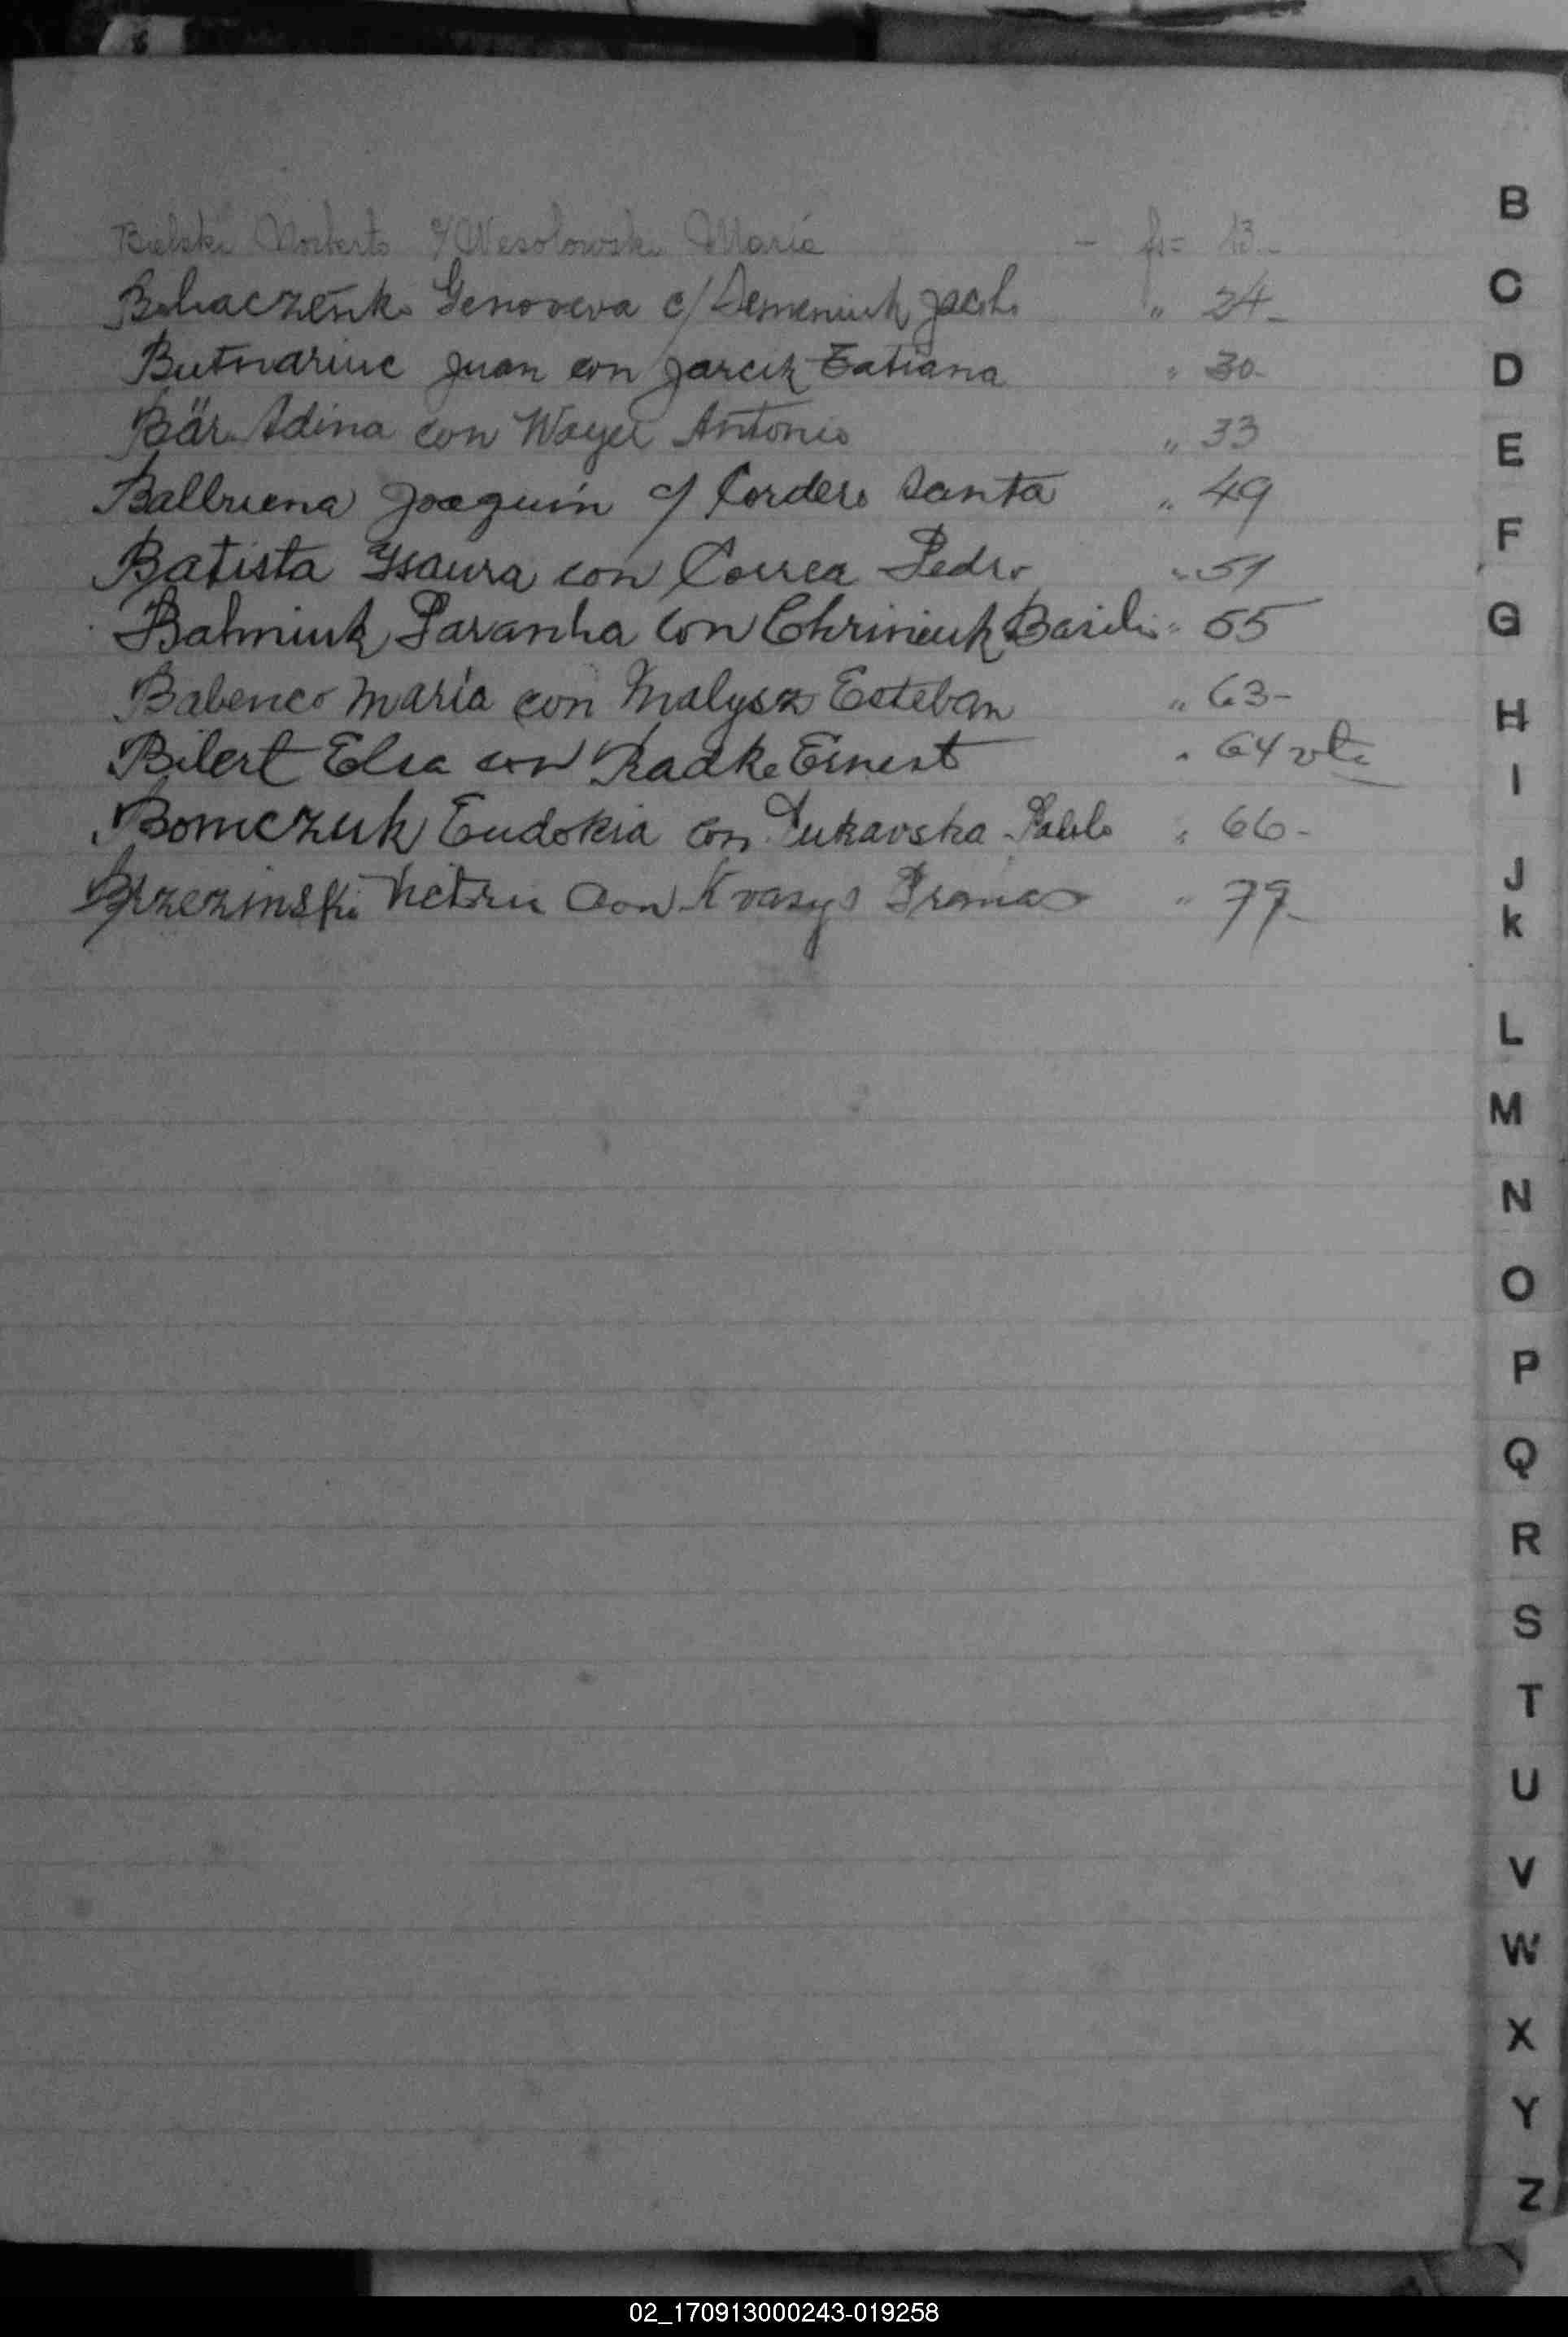 Bielski Norberto c/ Wesolowski María - fs= 13.-
Bohaczenko Genoveva c/ Semeniuk Jacobo " 24-
Butnariuc Juan con Jarcik Tatiana " 30-
Bär Adina con Wayer Antonio " 33
Balbuena Joaquín c/ Cordero Santa " 49
Batista Ysaura con Correa Pedro " 51
Bahniuk Paranha con Chriniuk Basilio " 55
Babenco María con Malysz Esteban " 63-
Bilert Elsa con Radke Ernest " 64 vta
Bomczuk Eudokia con Pablo " 66-
Brzezinski con Kvasys " 79-
B
C
D
E
F
G
H
I
J
k
L
M
N
O
P
Q
R
S
T
U
V
W
X
Y
Z
02_170913000243-019258